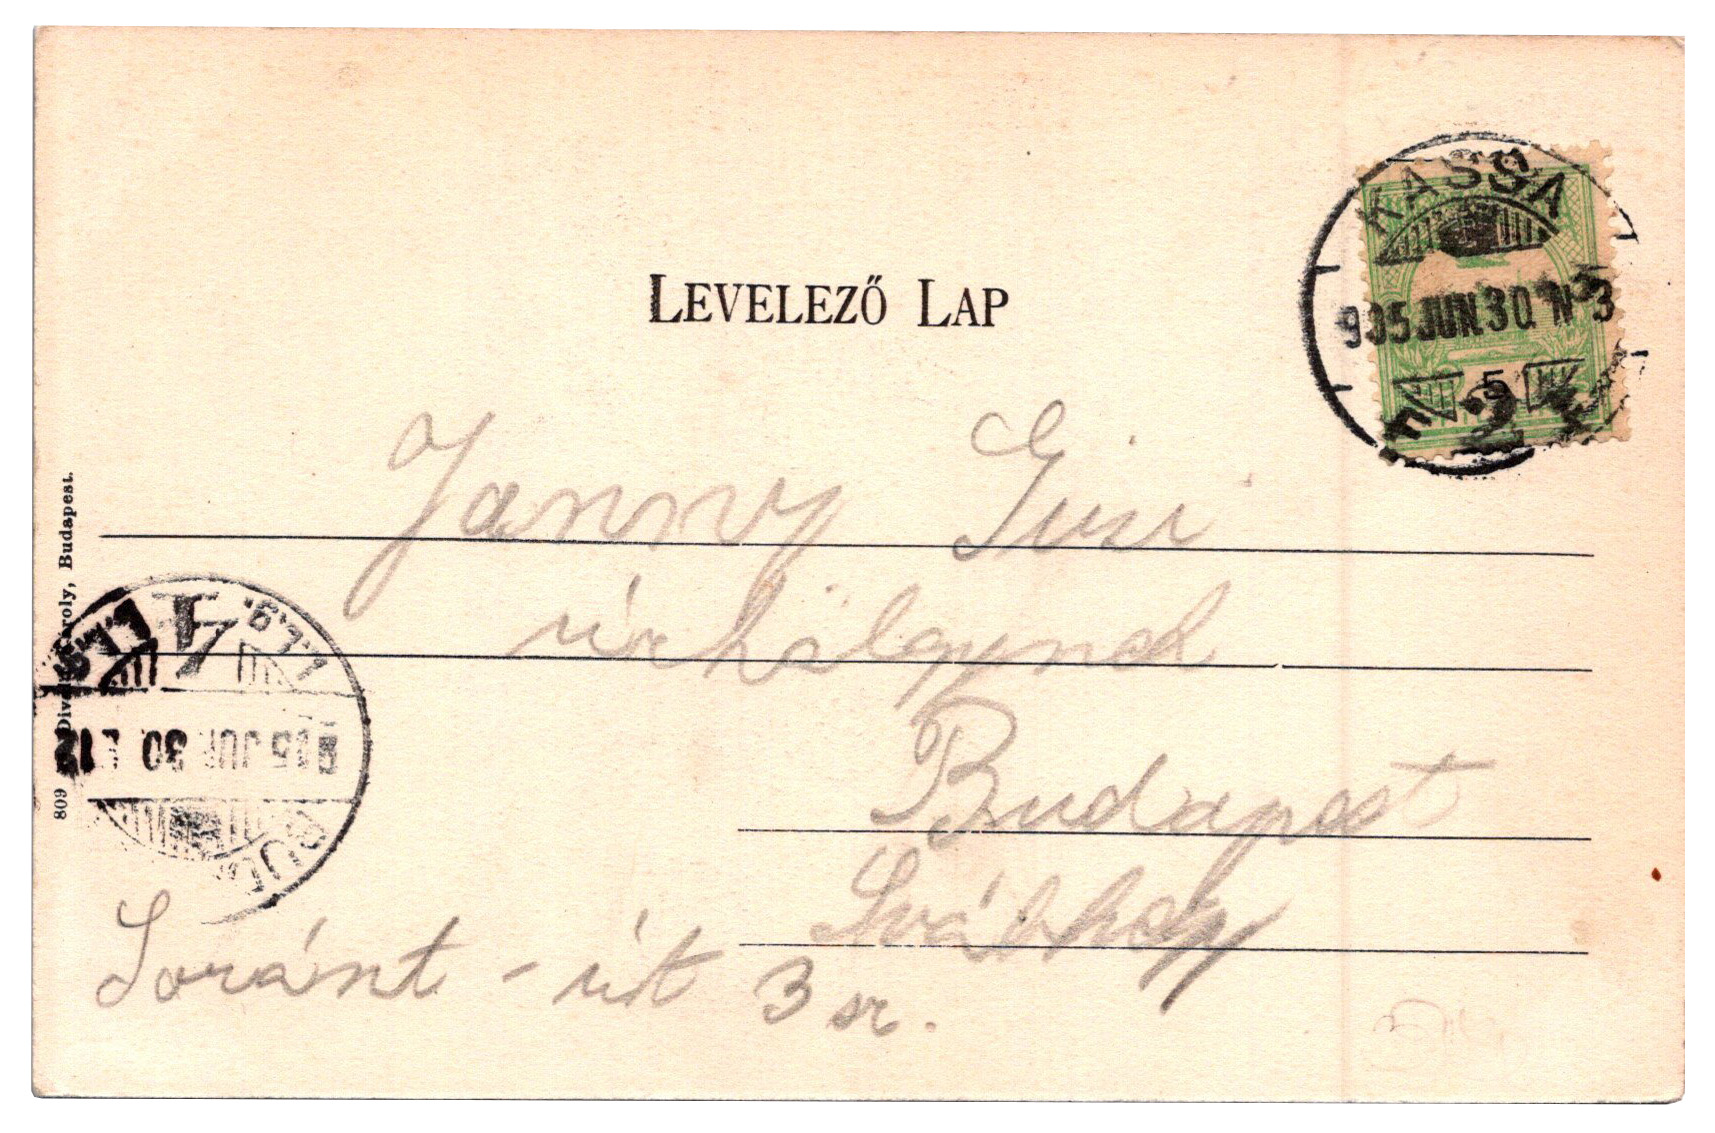 LEVELEZŐ LAP
KASSA
905 JUN. 30. N 3
5
2
Janny Gusi
úrhölgynek
Budapest
Svábhegy
Loránt - út 3 sz.
809 Divald Károly, Budapest.
905 JUN 30 12